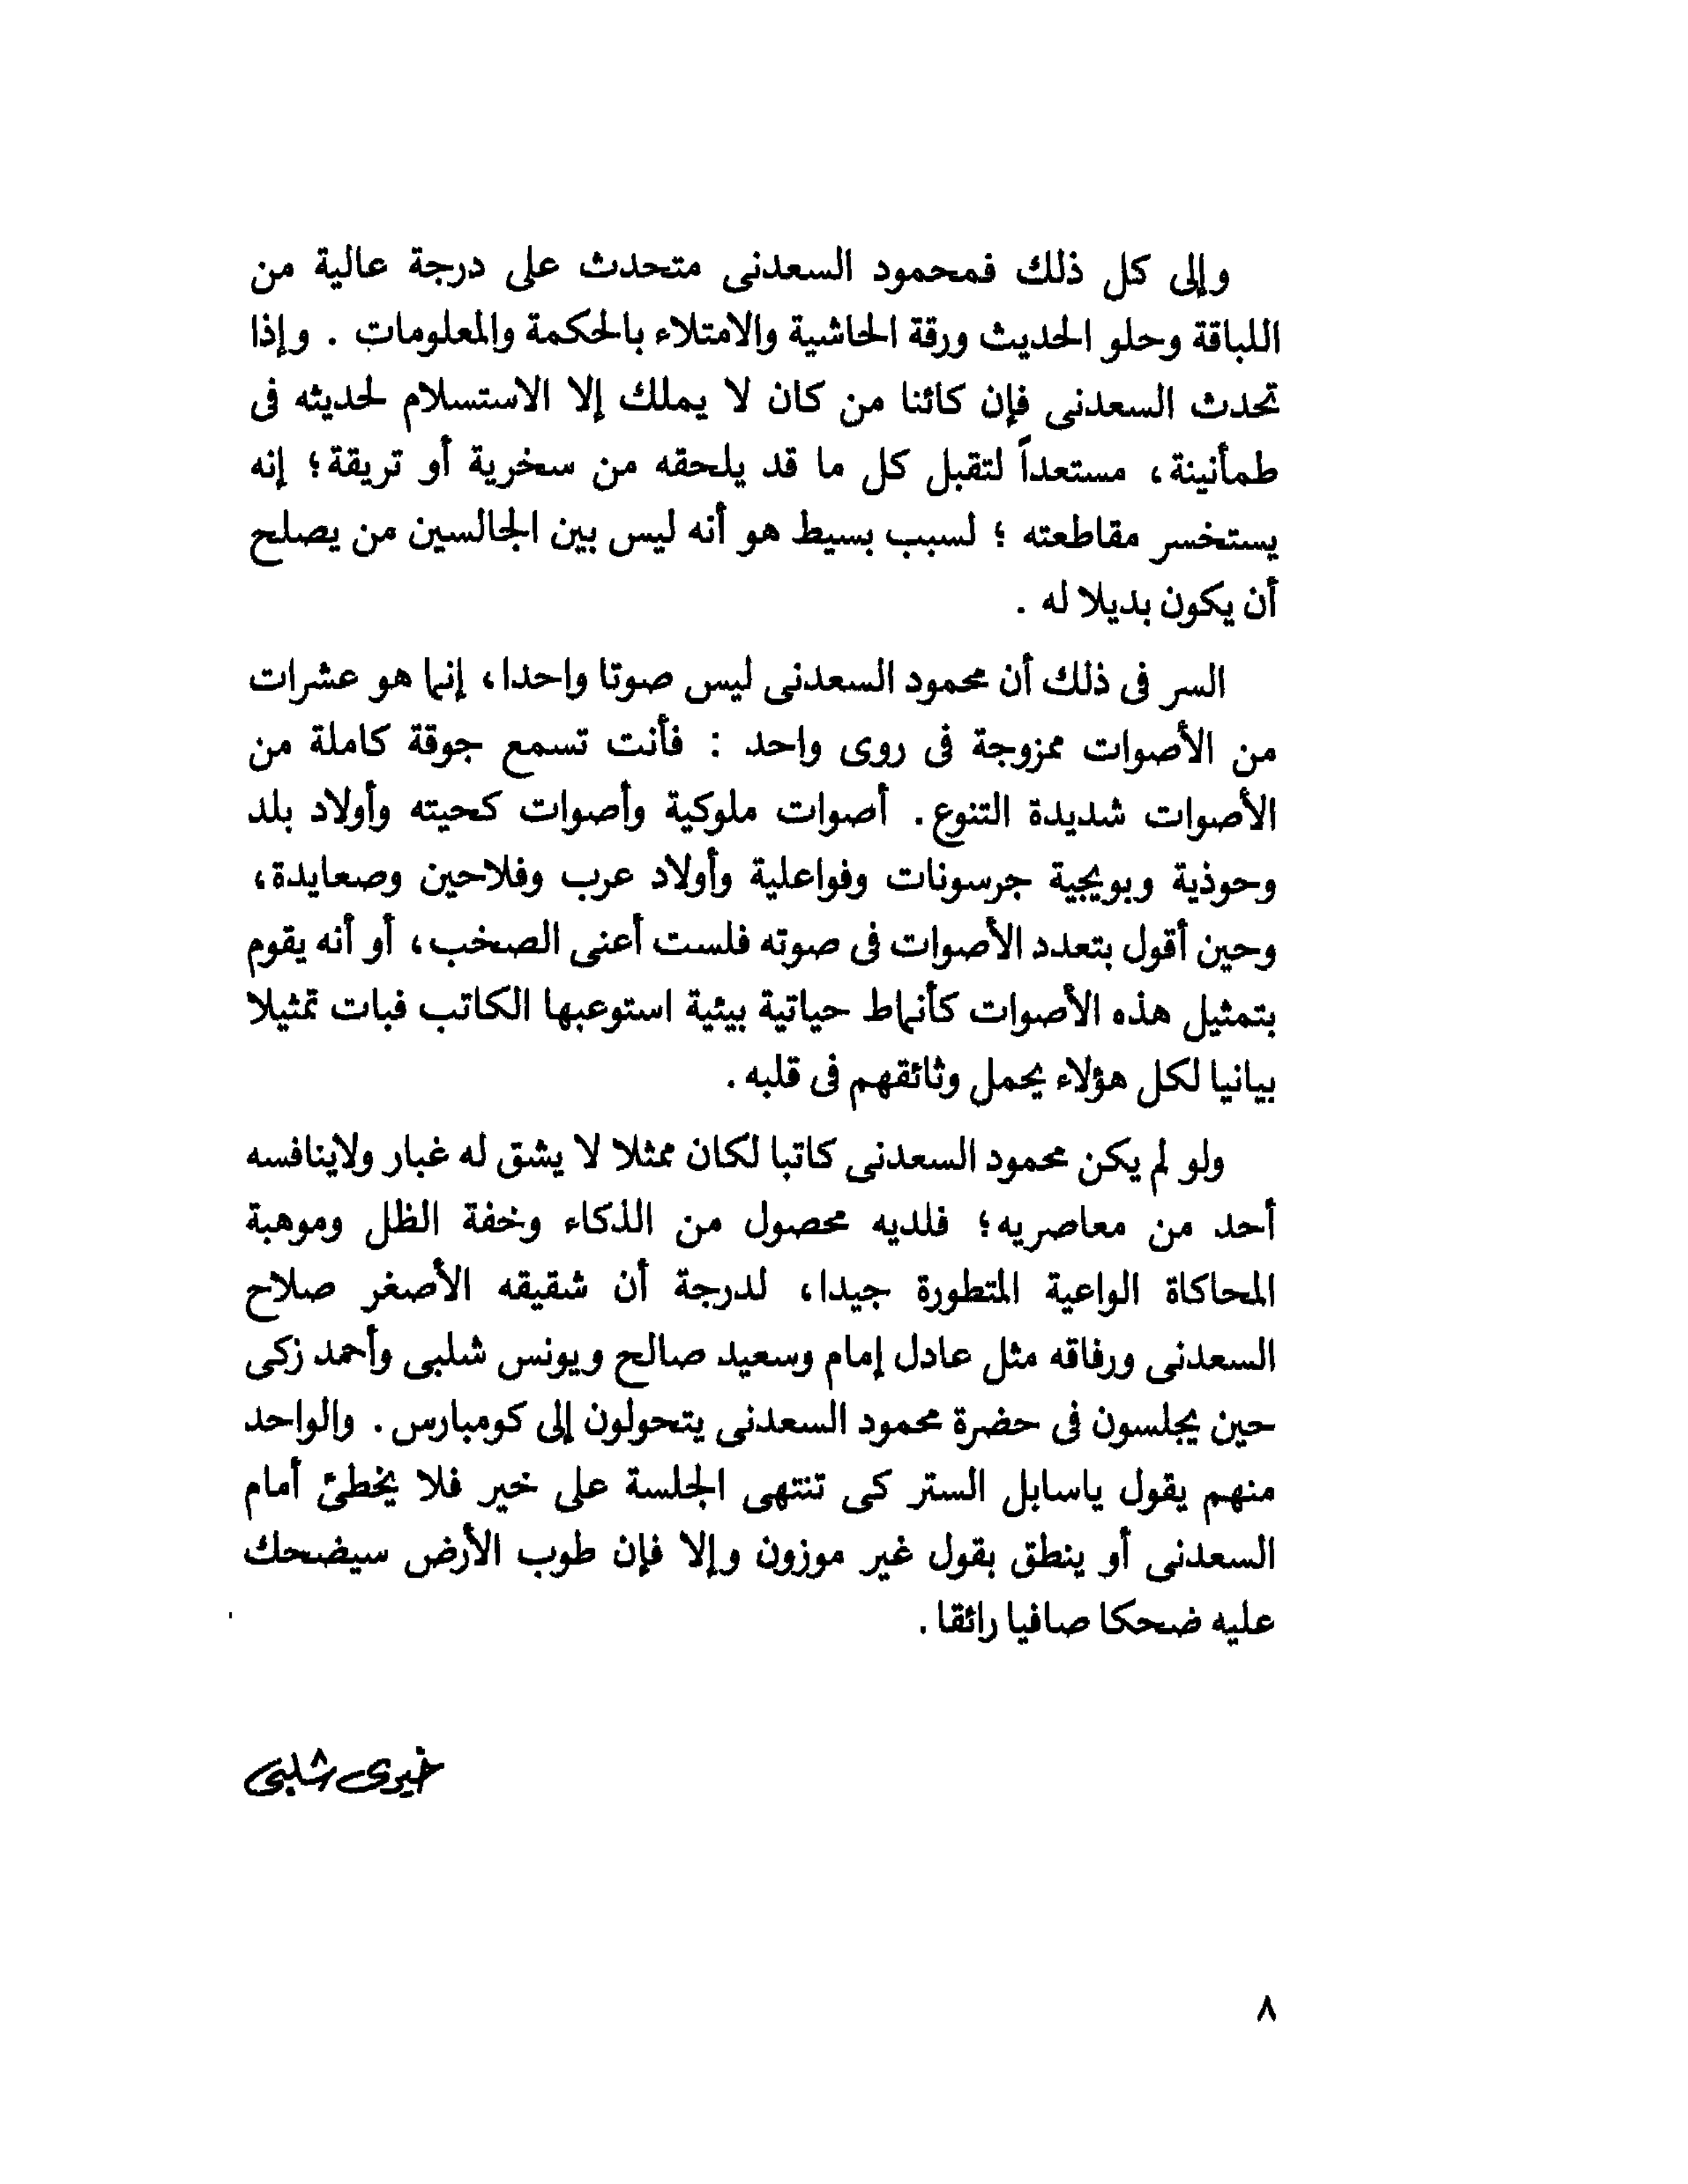 وإلى كل ذلك فمحمود السعدنى متحدث على درجة عالية من
اللباقة وحلو الحديث ورقة الحاشية والامتلاء بالحكمة والمعلومات . وإذا
تحدث السعدنى فإن كائنا من كان لا يملك إلا الاستسلام لحديثه فى
طمأنينة، مستعداً لتقبل كل ما قد يلحقه من سخرية أو تريقة؛ إنه
يستخسر مقاطعته ؛ لسبب بسيط هو أنه ليس بين الجالسين من يصلح
أن يكون بديلا له .
السر فى ذلك أن محمود السعدنى ليس صوتا واحدا، إنما هو عشرات
من الأصوات ممزوجة فى روى واحد : فأنت تسمع جوقة كاملة من
الأصوات شديدة التنوع. أصوات ملوكية وأصوات كحيته وأولاد بلد
وحوذية وبويجية جرسونات وفواعلية وأولاد عرب وفلاحين وصعايدة،
وحين أقول بتعدد الأصوات فى صوته فلست أعنى الصخب، أو أنه يقوم
بتمثيل هذه الأصوات كأنماط حياتية بيئية استوعبها الكاتب فبات تمثيلا
بيانيا لكل هؤلاء يحمل وثائقهم فى قلبه .
ولو لم يكن محمود السعدنى كاتبا لكان ممثلا لا يشق له غبار ولاينافسه
أحد من معاصريه؛ فلديه محصول من الذكاء وخفة الظل وموهبة
المحاكاة الواعية المتطورة جيدا، لدرجة أن شقيقه الأصغر صلاح
السعدنى ورفاقه مثل عادل إمام وسعيد صالح ويونس شلبى وأحمد زكى
حين يجلسون فى حضرة محمود السعدنى يتحولون إلى كومبارس. والواحد
منهم يقول ياسابل الستر كى تنتهى الجلسة على خير فلا يخطئ أمام
السعدنى أو ينطق بقول غير موزون وإلا فإن طوب الأرض سيضحك
عليه ضحكا صافيا رائقا .
خيرى شلبى
٨